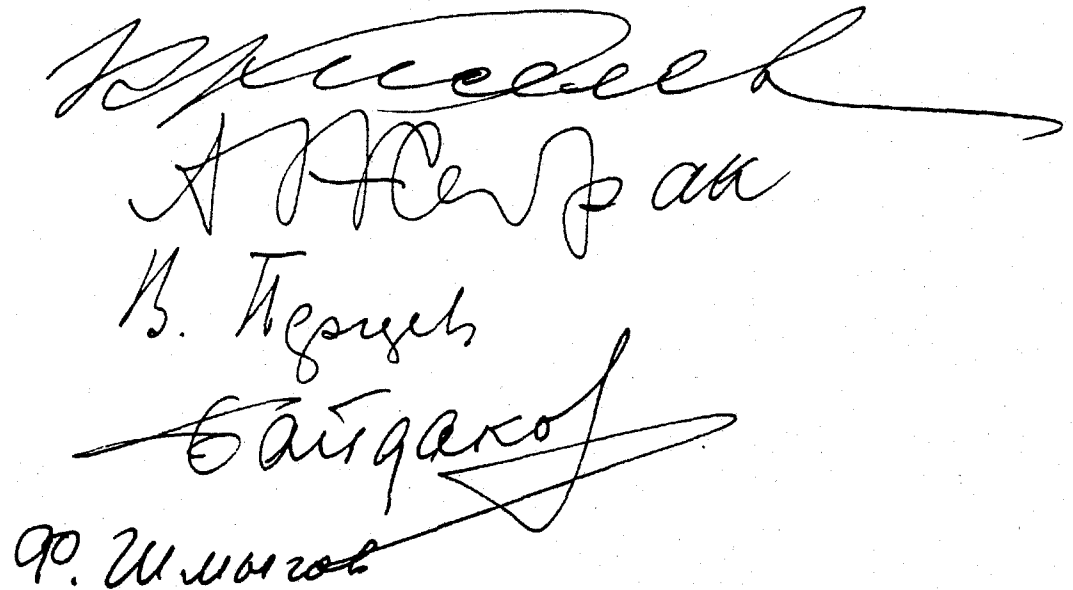 К Киселев
А Жебрак
В. Перцев
Байдаков
Ф. Шмыгов